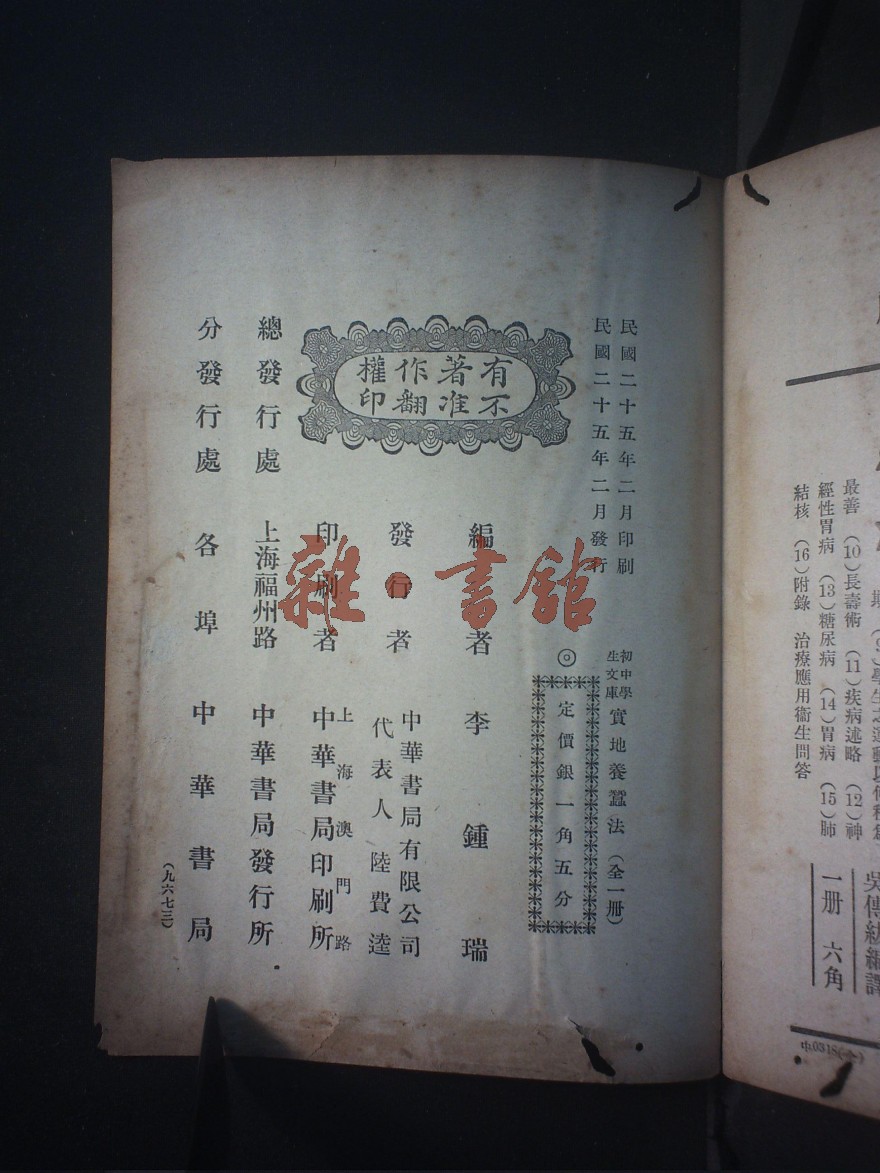 民國二十五年二月印刷
民國二十五年二月發行
初中學生文庫
實地養蠶法（全一冊）
◎定價銀一角五分
有著作權
不准翻印
編者 李鍾瑞
發行者 中華書局有限公司
代表人 陸費逵
印刷者 上海澳門路
中華書局印刷所
總發行處 上海福州路 中華書局發行所
分發行處 各埠中華書局
（九六七三）
雜·書館
最善 （10）長壽術 （11）疾病述略 （12）神
經性胃病 （13）糖尿病 （14）胃病 （15）肺
結核 （16）附錄 治療應用衞生問答
編譯
一冊 六角